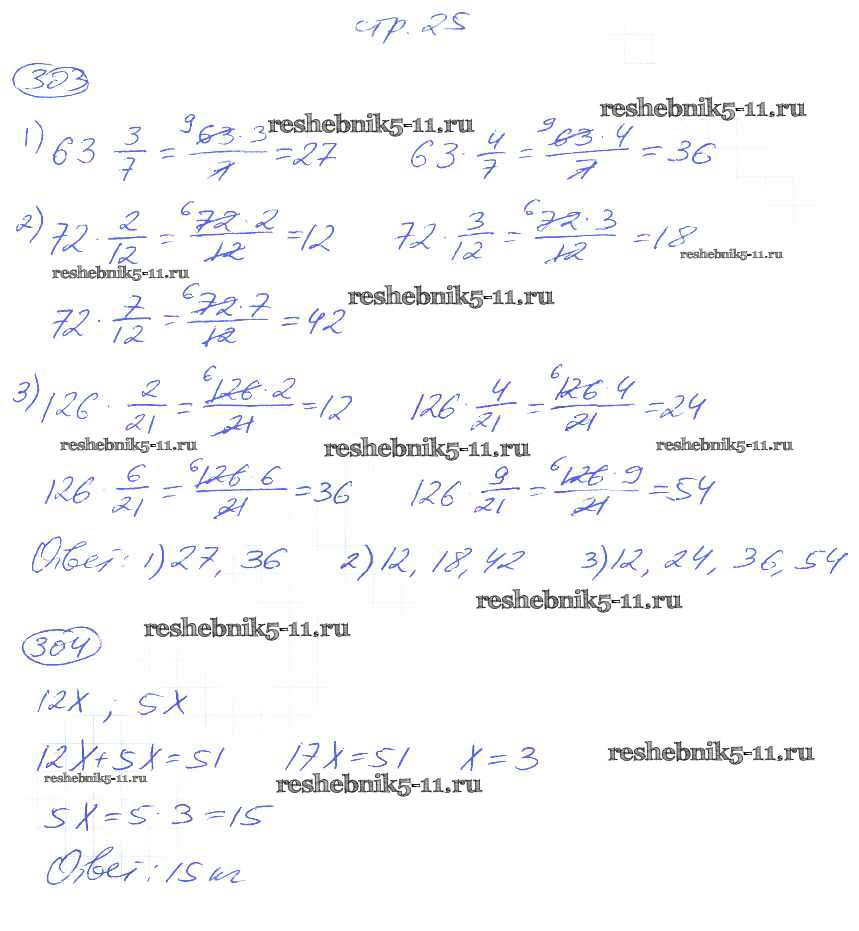 стр. 25
303
1) 63 3/7 = 63·3/7 = 27   63·4/7 = 63·4/7 = 36
reshebnik5-11.ru reshebnik5-11.ru
2) 72·2/12 = 72·2/12 = 12   72·3/12 = 72·3/12 = 18
reshebnik5-11.ru reshebnik5-11.ru
72·7/12 = 72·7/12 = 42
reshebnik5-11.ru
3) 126·2/21 = 126·2/21 = 12   126·4/21 = 126·4/21 = 24
reshebnik5-11.ru reshebnik5-11.ru reshebnik5-11.ru
126·6/21 = 126 6/21 = 36   126·9/21 = 126·9/21 = 54
Ответ: 1) 27, 36   2) 12, 18, 42   3) 12, 24, 36, 54
reshebnik5-11.ru
304 reshebnik5-11.ru
12x ; 5x
12x+5x=51   17x=51   x=3 reshebnik5-11.ru
reshebnik5-11.ru reshebnik5-11.ru
5x=5·3=15
Ответ: 15 кг